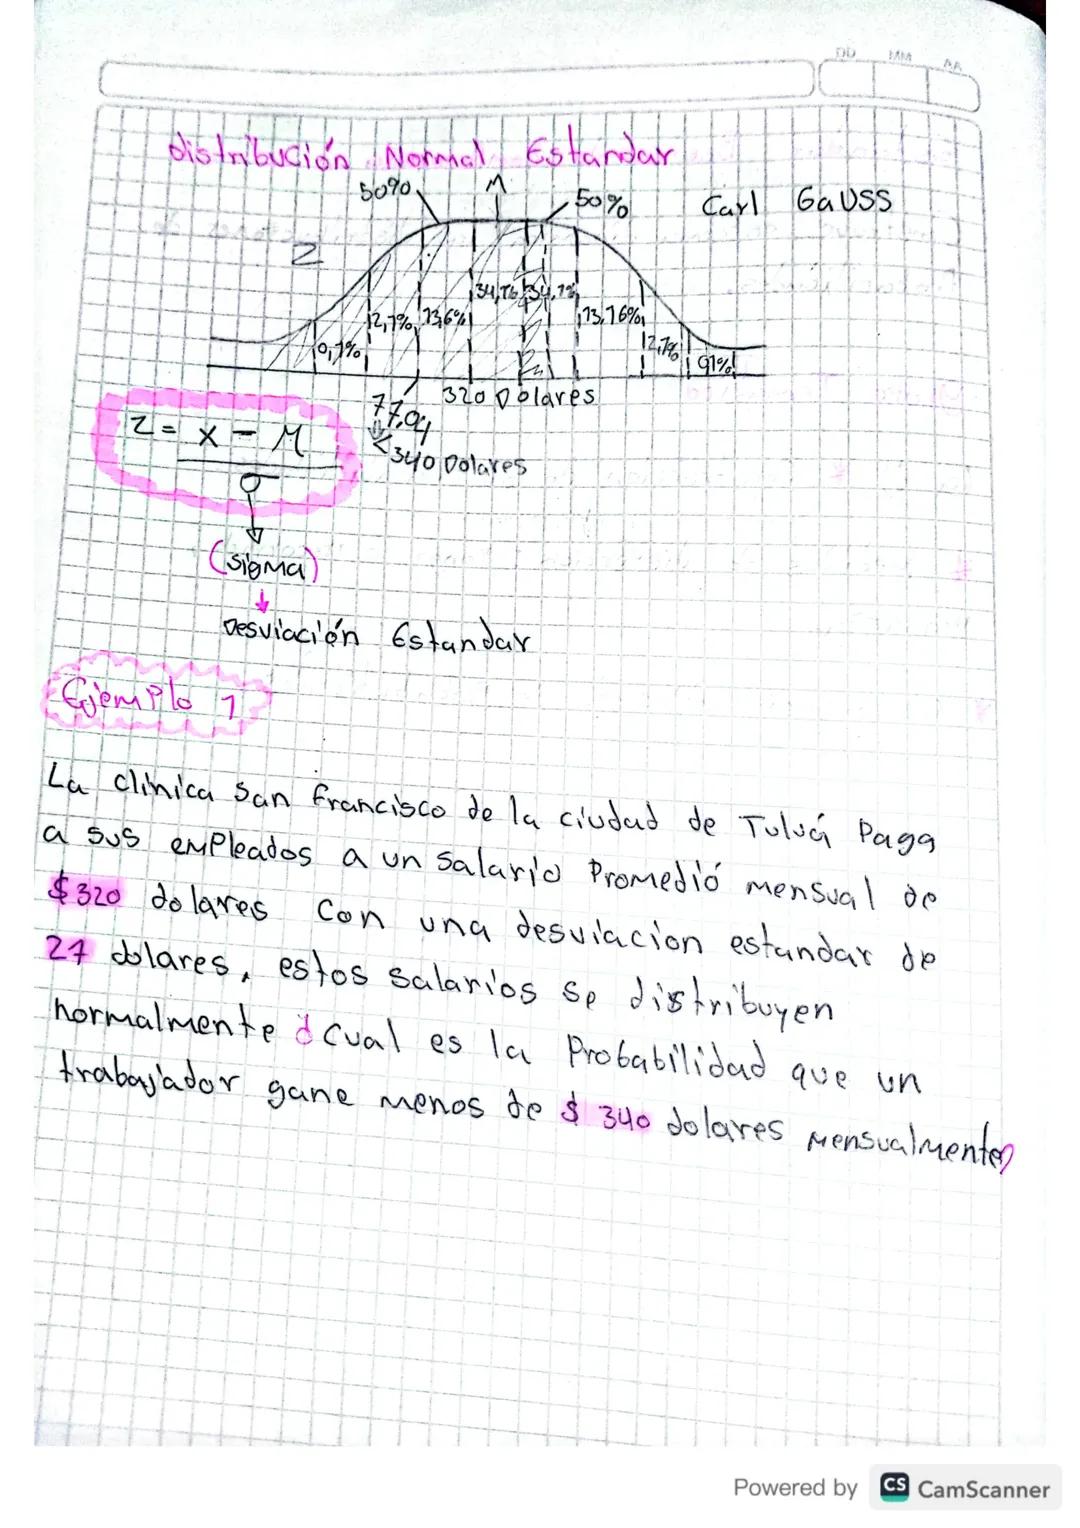 DD MM AA
distribución Normal Estandar
50% M 50% Carl GaUSS
Z
34,1% 34,1%
2,1% 13,6% 13,16%
0,1% 2,1% 91%
320 Dolares
77,04
<340 Dolares
Z = X - M
σ
(sigma)
Desviación Estandar
Ejemplo 1
La clinica San francisco de la ciudad de Tuluá Paga
a sus emPleados a un salario Promedió mensual de
$320 dolares Con una desviacion estandar de
27 dolares, estos salarios se distribuyen
normalmente ¿Cual es la Probabilidad que un
trabajador gane menos de $ 340 dolares mensualmente?
Powered by CS CamScanner